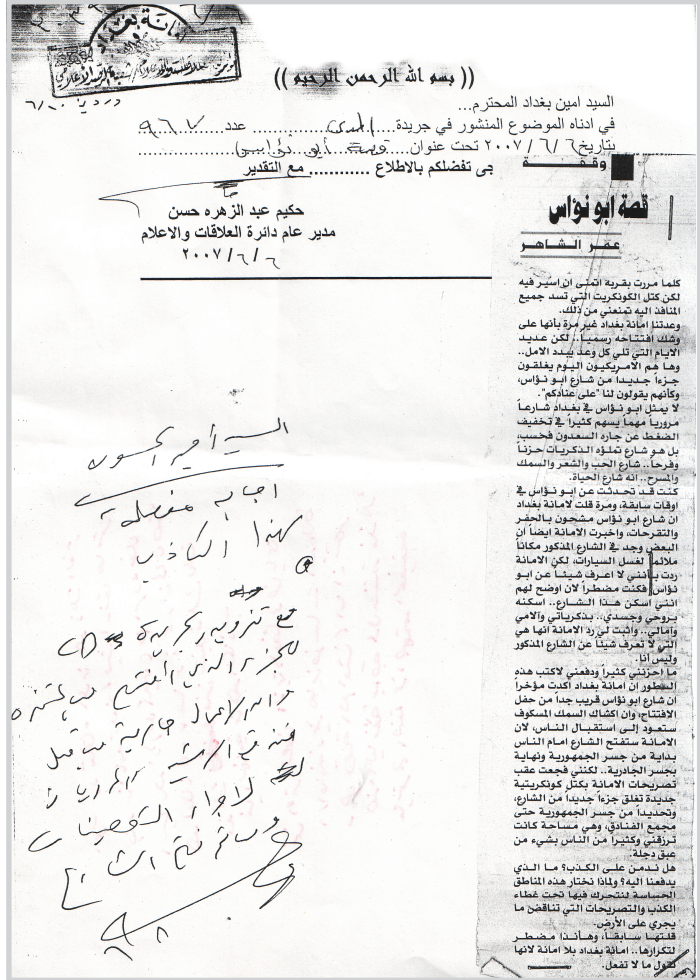 امانة بغداد
(( بسم الله الرحمن الرحيم ))
السيد امين بغداد المحترم...
في ادناه الموضوع المنشور في جريدة .... المدى .... عدد ....
بتاريخ ٦ / ٦ / ٢٠٠٧ تحت عنوان .... قصة أبو نؤاس ....
جى تفضلكم بالاطلاع ............ مع التقدير
حكيم عبد الزهره حسن
مدير عام دائرة العلاقات والاعلام
٦ / ٦ / ٢٠٠٧
وقفة
قصة ابو نؤاس
عمر الشاهر
كلما مررت بقربه اتمنى ان اسير فيه
لكن كتل الكونكريت التي تسد جميع
المنافذ اليه تمنعني من ذلك.
وعدتنا امانة بغداد غير مرة بأنها على
وشك افتتاحه رسمياً.. لكن عديد
الايام التي تلي كل وعد يبدد الامل..
وها هم الامريكيون اليوم يغلقون
جزءاً جديداً من شارع ابو نؤاس،
وكأنهم يقولون لنا "على عنادكم".
لا يمثل ابو نؤاس في بغداد شارعاً
مرورياً مهماً يسهم كثيراً في تخفيف
الضغط عن جاره السعدون فحسب،
بل هو شارع تملؤه الذكريات حزناً
وفرحاً.. شارع الحب والشعر والسمك
والمسرح.. انه شارع الحياة.
كنت قد تحدثت عن ابو نؤاس في
اوقات سابقة، ومرة قلت لامانة بغداد
ان شارع ابو نؤاس مشحون بالحفر
والتقرحات، واخبرت الامانة ايضاً ان
البعض وجد في الشارع المذكور مكاناً
ملائماً لغسل السيارات، لكن الامانة
ردت بأنني لا اعرف شيئاً عن ابو
نؤاس فكنت مضطراً لان اوضح لهم
انني اسكن هذا الشارع.. اسكنه
بروحي وجسدي.. بذكرياتي وآلامي
وآمالي.. وأثبت لي رد الامانة انها هي
التي لا تعرف شيئاً عن الشارع المذكور
وليس انا.
ما احزنني كثيراً ودفعني لاكتب هذه
السطور ان امانة بغداد اكدت مؤخراً
ان شارع ابو نؤاس قريب جداً من حفل
الافتتاح، وان اكشاك السمك المسكوف
ستعود إلى استقبال الناس، لان
الامانة ستفتح الشارع امام الناس
بداية من جسر الجمهورية ونهاية
بجسر الجادرية.. لكنني فجعت عقب
تصريحات الامانة بكتل كونكريتية
جديدة تغلق جزءاً جديداً من الشارع،
وتحديداً من جسر الجمهورية حتى
مجمع الفنادق، وهي مساحة كانت
ترزقني وكثيراً من الناس بشيء من
عبق دجلة.
هل ندمن على الكذب؟ ما الذي
يدفعنا اليه؟ ولماذا نختار هذه المناطق
الحساسة لنتحرك فيها تحت غطاء
الكذب والتصريحات التي تناقض ما
يجري على الأرض.
قلتها سابقاً، وهأنذا مضطر
لتكرارها.. امانة بغداد بلا امانة لانها
تقول ما لا تفعل.
السيد أمير
اجابة مفصلة
لهذا الكاذب
مع تزويد الجريدة CD
للجزء الذي افتتح